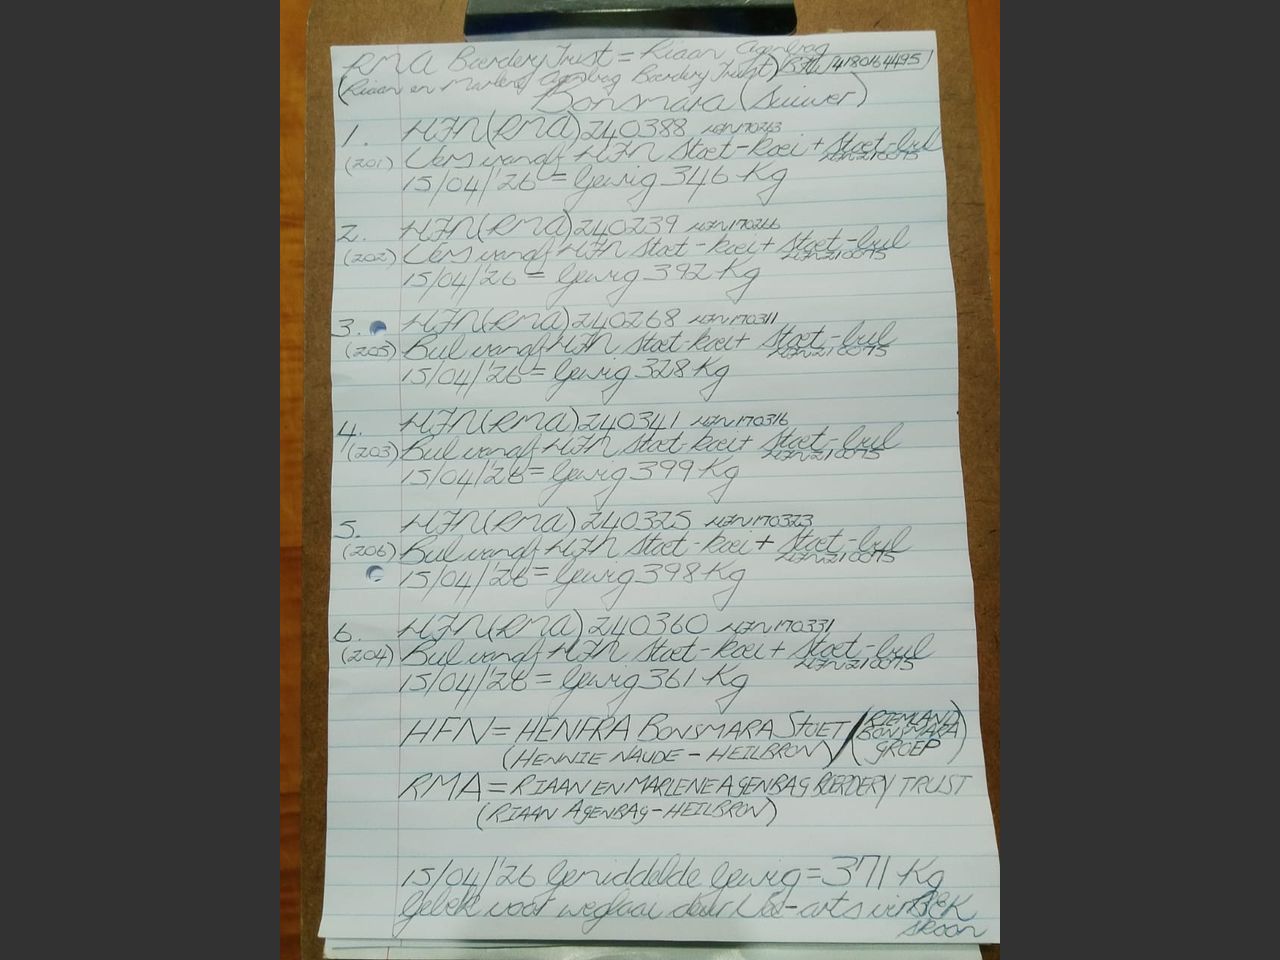 RMA Boerdery Trust = Riaan Agenbag
(Riaan en Marlene Agenbag Boerdery Trust) BTW 4180164495
Bonsmara (Suiwer)
1. HFN(RMA)240388 HFN170213
(201) Vers vanaf HFN Stoet-koei + Stoet-bul
HFN210075
15/04/'26 = Gewig 346 Kg
2. HFN(RMA)240239 HFN170266
(202) Vers vanaf HFN Stoet-koei + Stoet-bul
HFN210075
15/04/'26 = Gewig 392 Kg
3. HFN(RMA)240268 HFN170311
(205) Bul vanaf HFN Stoet-koei + Stoet-bul
HFN210075
15/04/'26 = Gewig 328 Kg
4. HFN(RMA)240341 HFN170316
(203) Bul vanaf HFN Stoet-koei + Stoet-bul
HFN210075
15/04/'26 = Gewig 399 Kg
5. HFN(RMA)240325 HFN170323
(206) Bul vanaf HFN Stoet-koei + Stoet-bul
HFN210075
15/04/'26 = Gewig 398 Kg
6. HFN(RMA)240360 HFN170331
(204) Bul vanaf HFN Stoet-koei + Stoet-bul
HFN210075
15/04/'26 = Gewig 361 Kg
HFN = HENFRA BONSMARA STOET / (RIEMLAND BONSMARA GROEP)
(HENNIE NAUDE - HEILBRON)
RMA = RIAAN EN MARLENE AGENBAG BOERDERY TRUST
(RIAAN AGENBAG - HEILBRON)
15/04/'26 Gemiddelde Gewig = 371 Kg
Getek voor weglaai deur Vee-arts vir BEK
SKOON